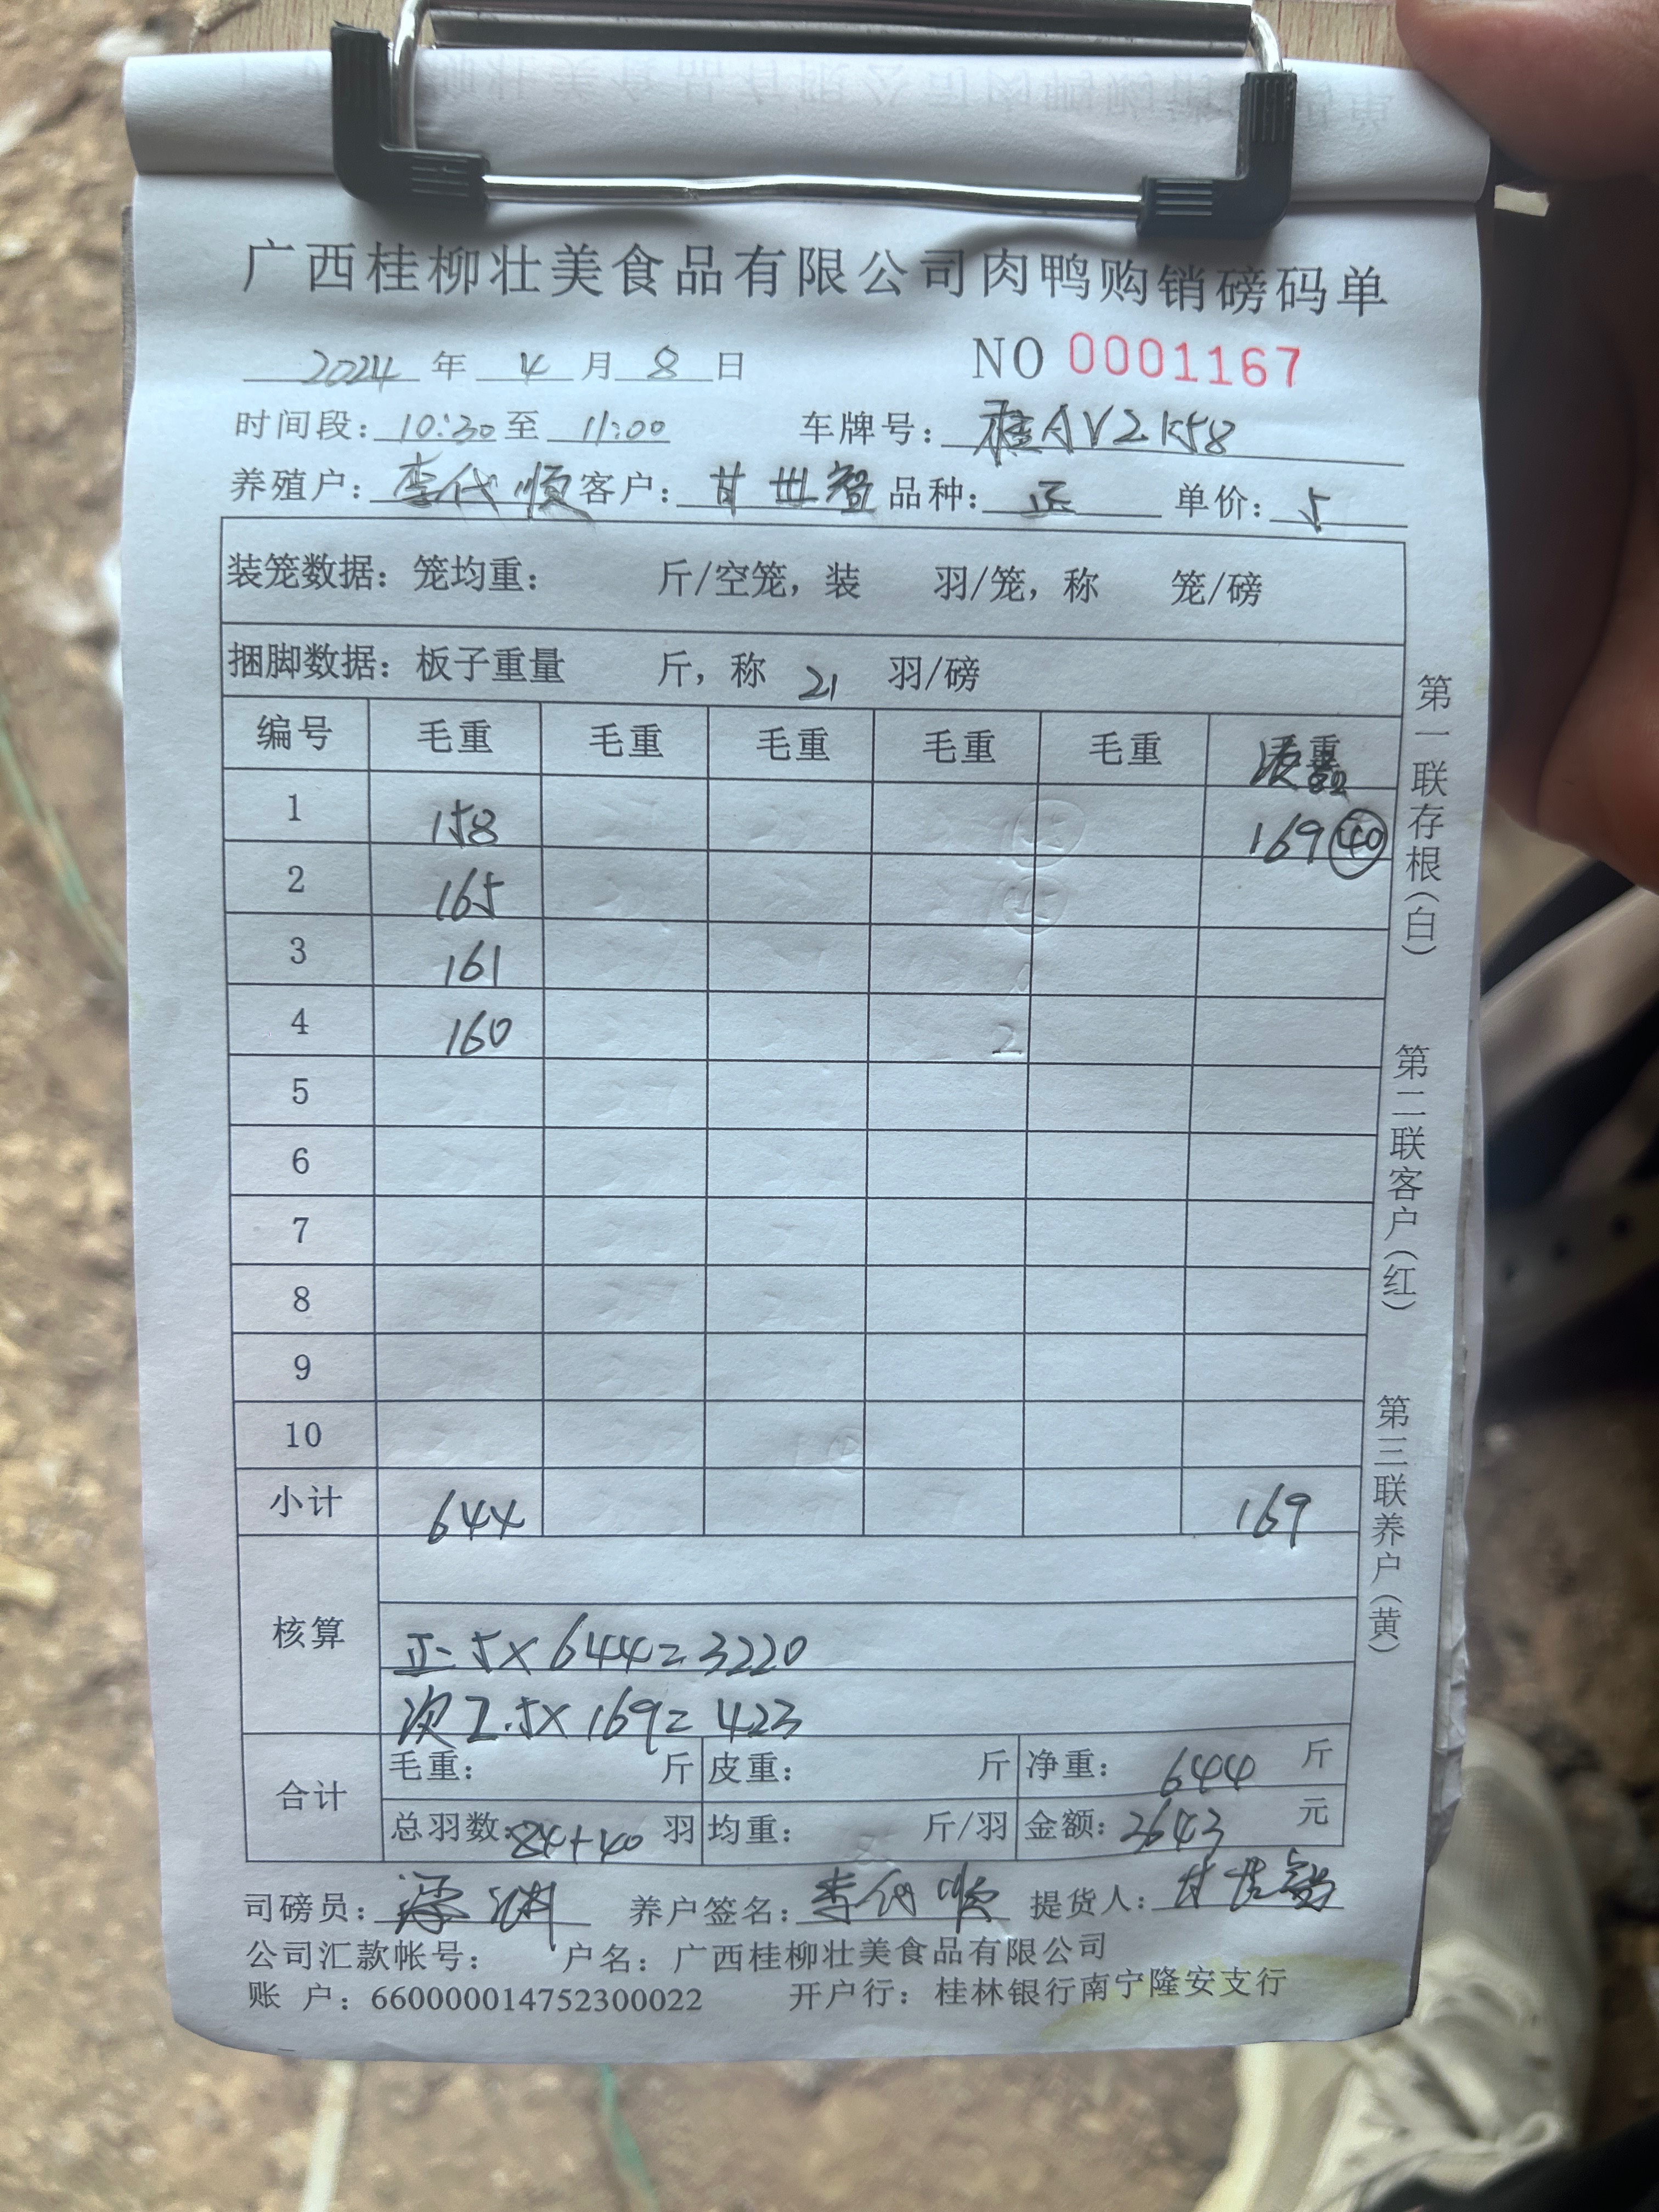 广西桂柳壮美食品有限公司肉鸭购销磅码单
2024年4月8日 NO 0001167
时间段：10:30至11:00 车牌号：桂AV2K58
养殖户：李代顺 客户：甘世智 品种：正 单价：5
装笼数据：笼均重： 斤/空笼，装 羽/笼，称 笼/磅
捆脚数据：板子重量 斤，称 21 羽/磅
编号 毛重 毛重 毛重 毛重 毛重 次
1 158 169 40
2 165
3 161
4 160 2
5
6
7
8
9
10
小计 644 169
核算
正 5×644=3220
次 2.5×169=423
合计 毛重： 斤 皮重： 斤 净重：644 斤
总羽数：84+40 羽 均重： 斤/羽 金额：3643 元
司磅员： 养户签名：李代顺 提货人：甘世智
公司汇款帐号： 户名：广西桂柳壮美食品有限公司
账 户：660000014752300022 开户行：桂林银行南宁隆安支行
第一联存根（白）
第二联客户（红）
第三联养户（黄）